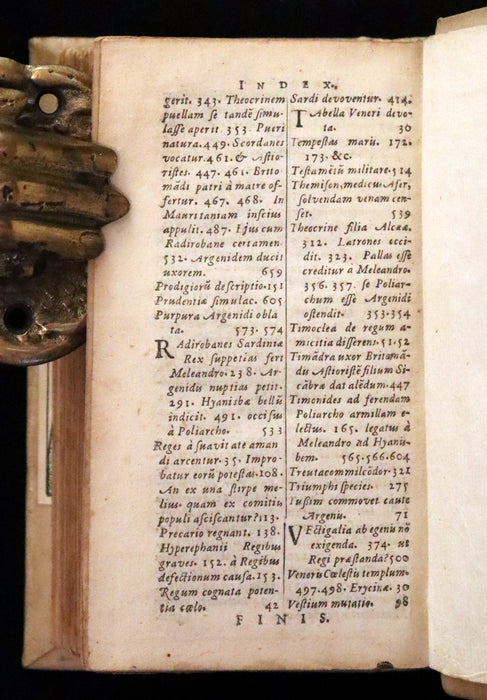 INDEX.
gerit. 343. Theocrinem
puellam se tandẽ simu-
lasse aperit. 353. Pueri
natura. 449. Scordanes
vocatur. 461. & Astio-
ristes. 447. 461. Brito-
mãdi patri à matre of-
fertur. 467. 468. In
Mauritaniam inscius
appulit. 487. Ejus cum
Radirobane certamen
532. Argenidem ducit
uxorem. 659
Prodigiorũ descriptio. 151
Prudentiæ simulac. 605
Purpura Argenidi obla
ta. 573. 574
RAdirobanes Sardiniæ
Rex suppetias fert
Meleandro. 238. Ar-
genidis nuptias petit.
291. Hyanisbæ bellũ
indicit. 491. occisus
à Poliarcho. 533
Reges à suavitate aman
di arcentur. 35. Impro-
batur eorũ potestas. 108.
An ex una stirpe me-
lius, quam ex comitiis
populi asciscantur? 113.
Precario regnant. 138.
Hyperephanii Regibus
graves. 152. à Regibus
defectionum causa. 153.
Regum cognata poten-
tia cælo. 42
Sardi devoventur. 414.
TAbella Veneri devo-
ta. 30
Tempestas maris. 172.
173. &c.
Testamẽtũ militare. 514
Themison, medicus Afer,
solvendam venam cen-
set. 539
Theocrine filia Alcææ.
312. Latrones occi-
dit. 323. Pallas esse
creditur à Meleandro.
356. 357. se Poliar-
chum esse Argenidi
ostendit. 353. 354
Timoclea de regum a-
micitia disserens. 51. 52
Timãdra uxor Britomã-
di Astioristẽ filium Si-
cãbræ dat alẽdum. 447
Timonides ad ferendam
Poliarcho armillam e-
lectus. 165. legatus à
Meleandro ad Hyanis-
bem. 565. 566. 604
Treutacommilcõdor. 321
Triumphi species. 275
Tussim commovet caute
Argenis. 71
VEctigalia ab egenis nõ
exigenda. 374. ut
Regi præstanda? 500
Veneris Cœlestis templum.
497. 498. Erycinæ. 30
Vestium mutatio. 98
FINIS.